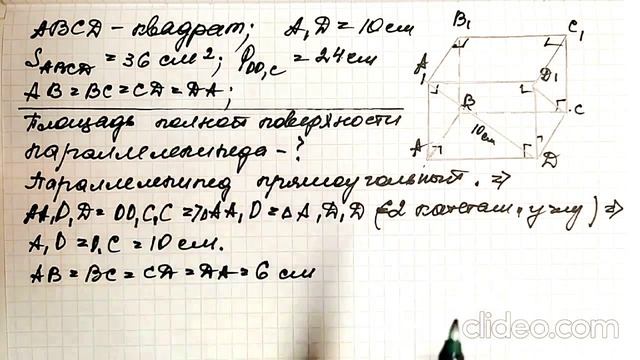 ABCD - квадрат; A₁D = 10 см
S_ABCD = 36 см²; P_DD₁C = 24 см
AB = BC = CD = DA;
Площадь полной поверхности
параллелепипеда - ?
Параллелепипед прямоугольный. ⇒
AA₁D₁D = DD₁C₁C ⇒ △AA₁D = △A₁D₁D (2 катетам, углу) ⇒
A₁D = D₁C = 10 см.
AB = BC = CD = DA = 6 см
B₁
C₁
A₁
D₁
B
C
10 см
A
D
clideo.com